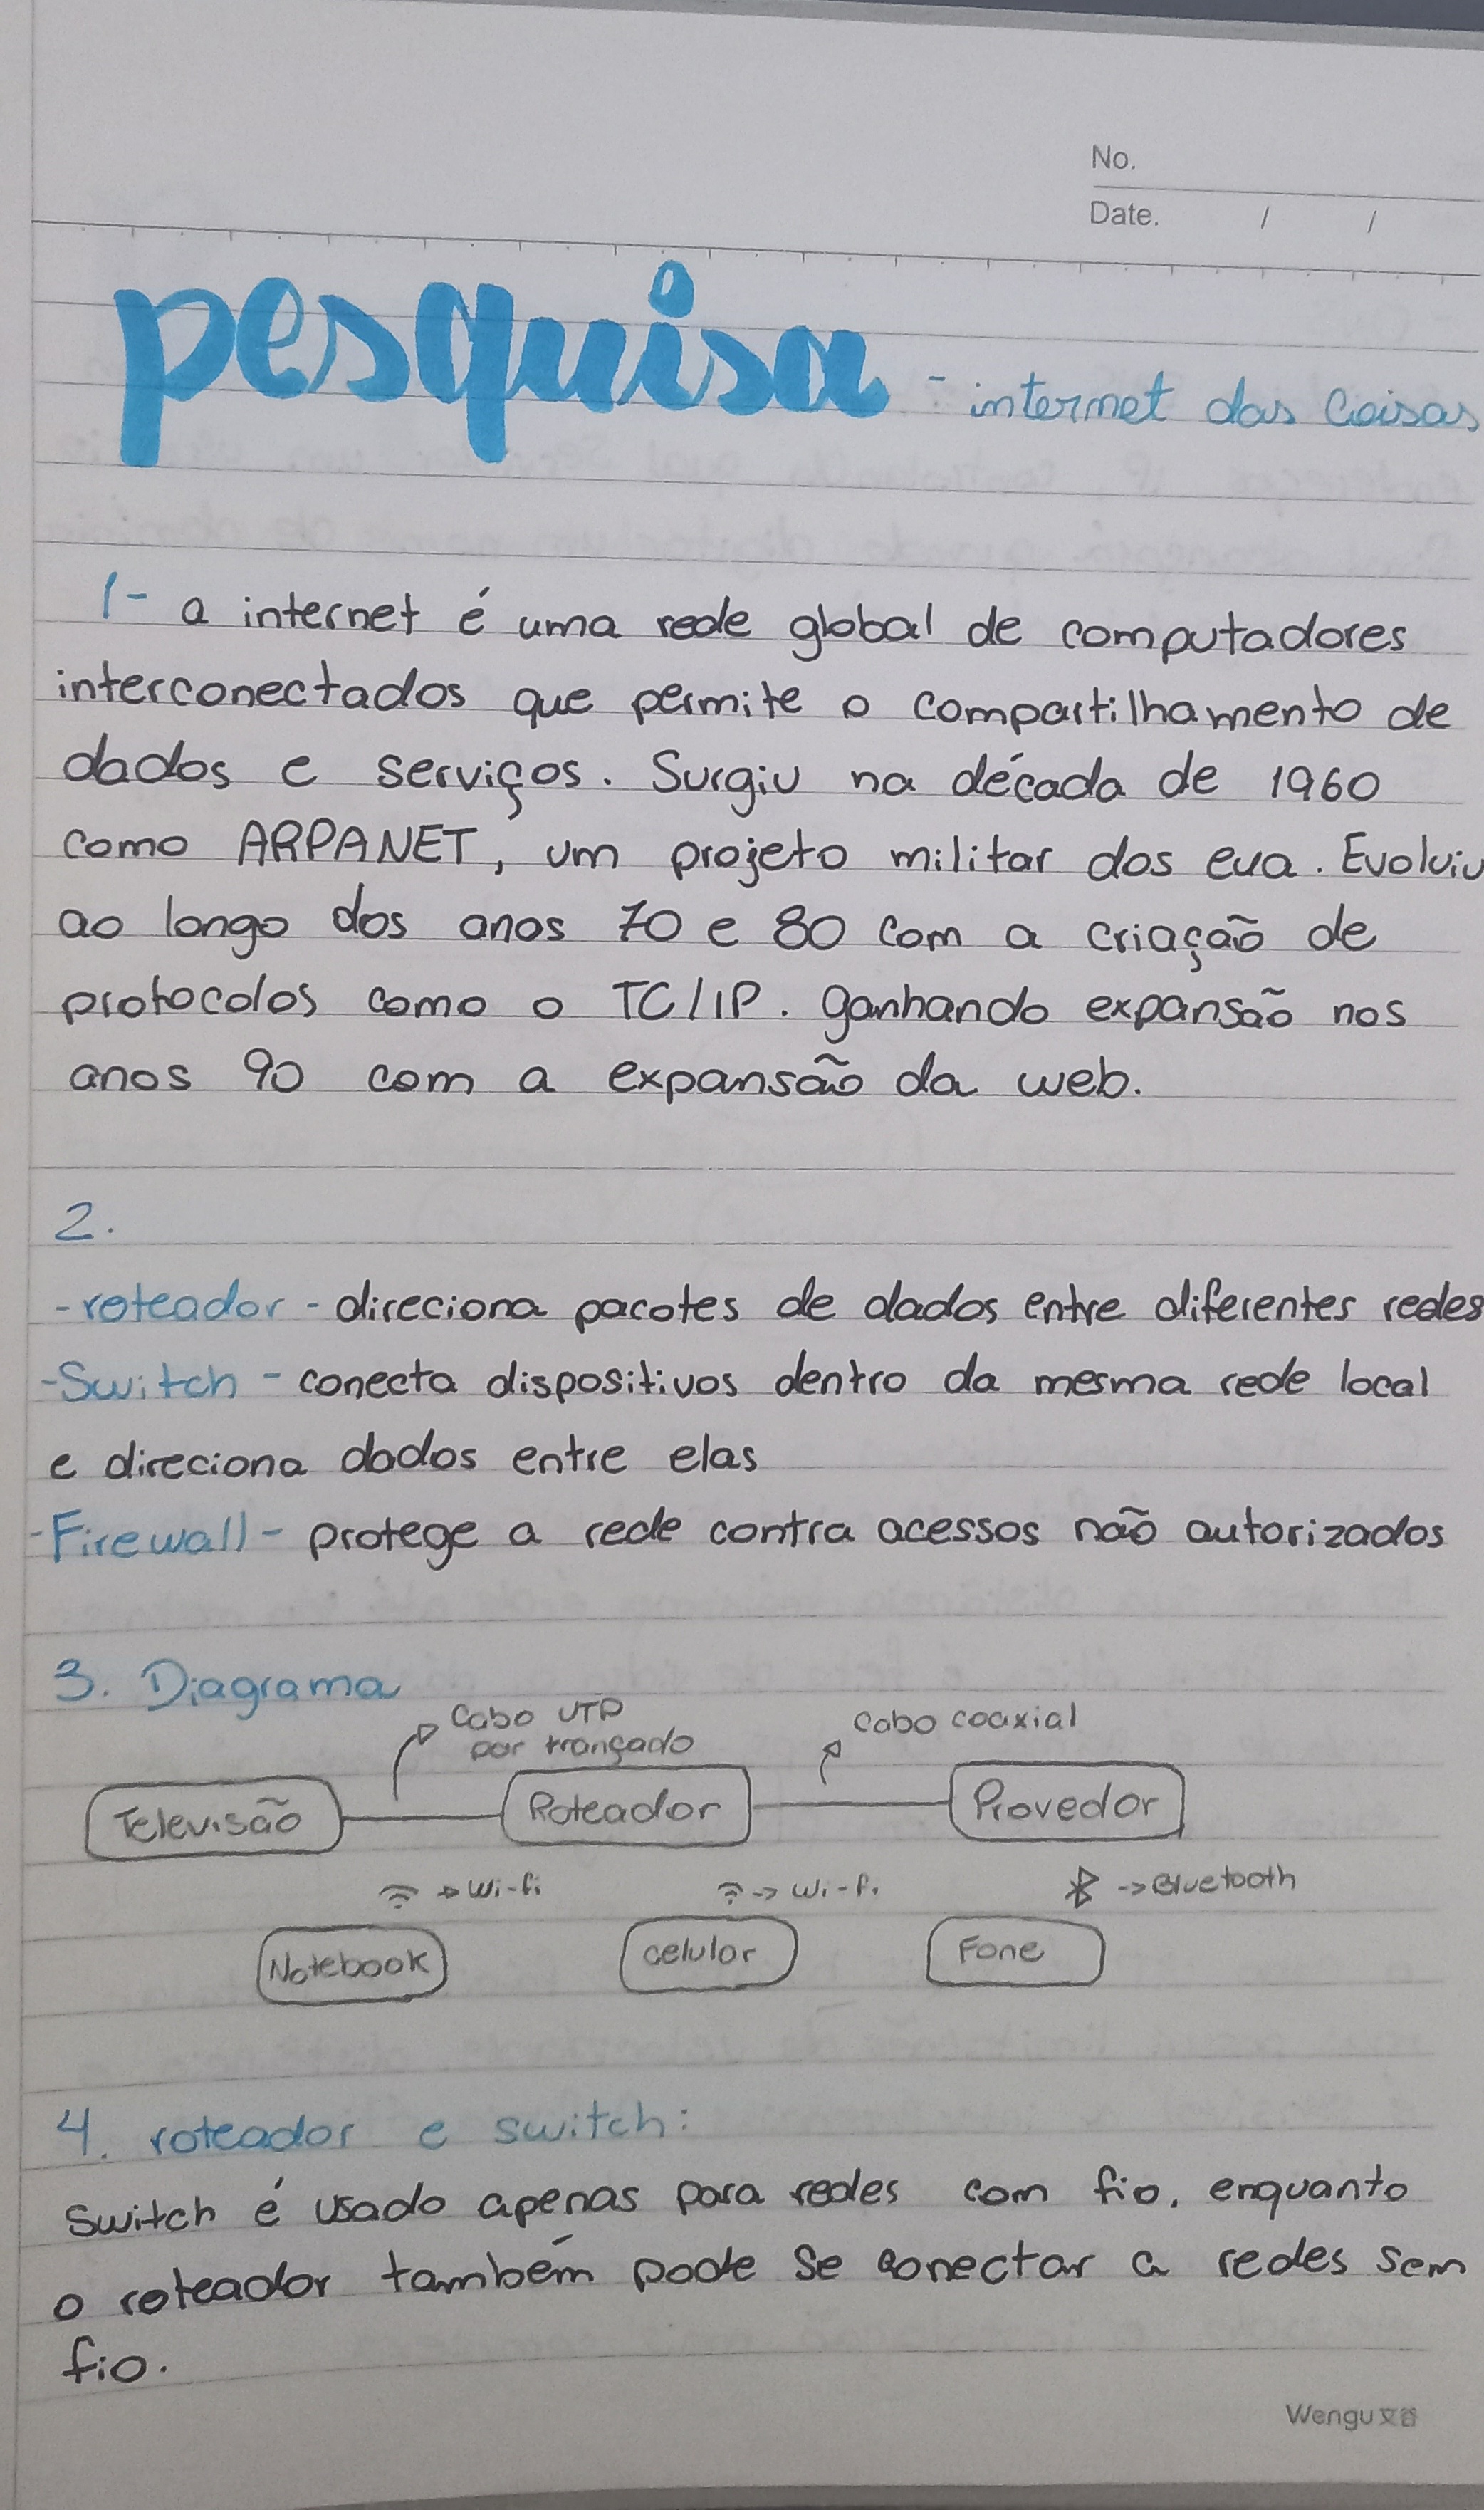 No.
Date. / /
pesquisa - internet das Coisas
1- a internet é uma rede global de computadores
interconectados que permite o compartilhamento de
dados e serviços. Surgiu na década de 1960
como ARPANET, um projeto militar dos eua. Evoluiu
ao longo dos anos 70 e 80 com a criação de
protocolos como o TC/IP. ganhando expansão nos
anos 90 com a expansão da web.
2.
- roteador - direciona pacotes de dados entre diferentes redes
- Switch - conecta dispositivos dentro da mesma rede local
e direciona dados entre elas
- Firewall - protege a rede contra acessos não autorizados
3. Diagrama
Cabo UTP
par trançado
Cabo coaxial
Televisão
Roteador
Provedor
Wi-fi
Wi-fi
Bluetooth
Notebook
celular
Fone
4. roteador e switch:
Switch é usado apenas para redes com fio, enquanto
o roteador também pode se conectar a redes sem
fio.
Wengu文谷